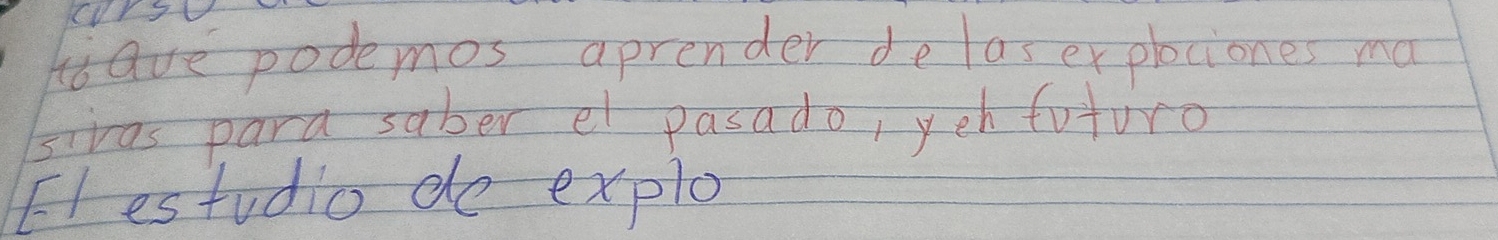 curso de
10 Qué podemos aprender de las explociones ma
sivas para saber el pasado, y eh futuro
El estudio de explo